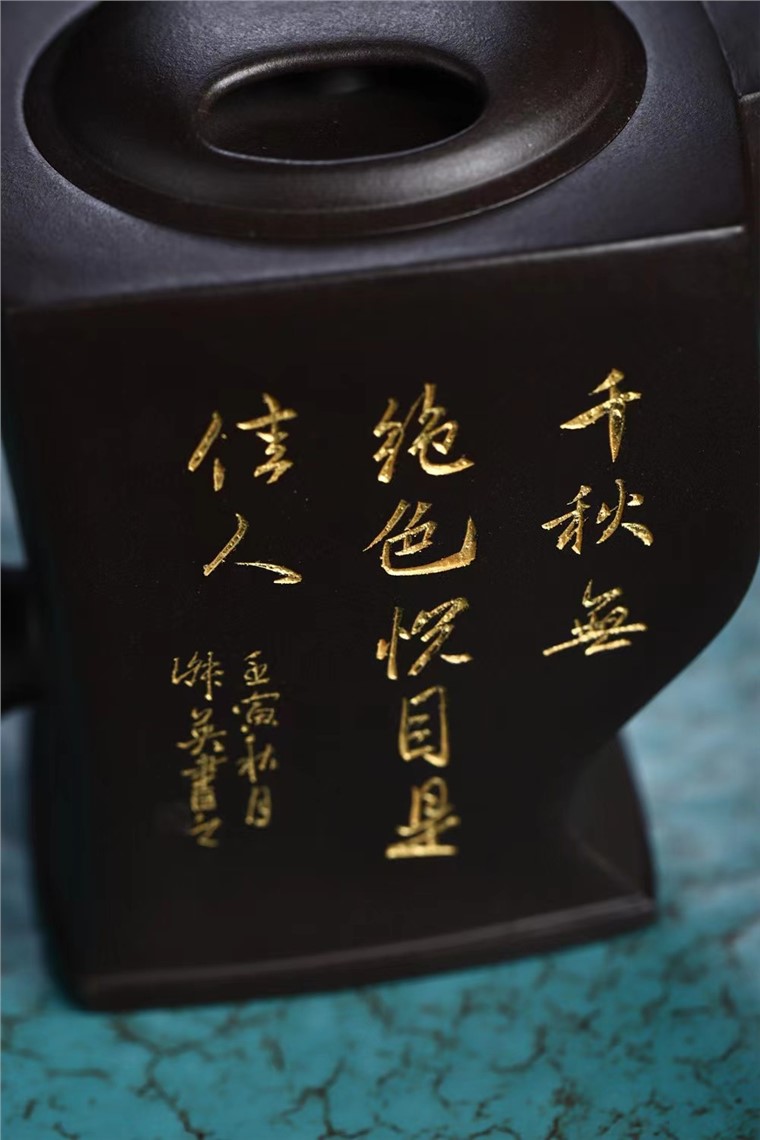 千秋無
絶色悦目是
佳人
壬寅秋月
英書之